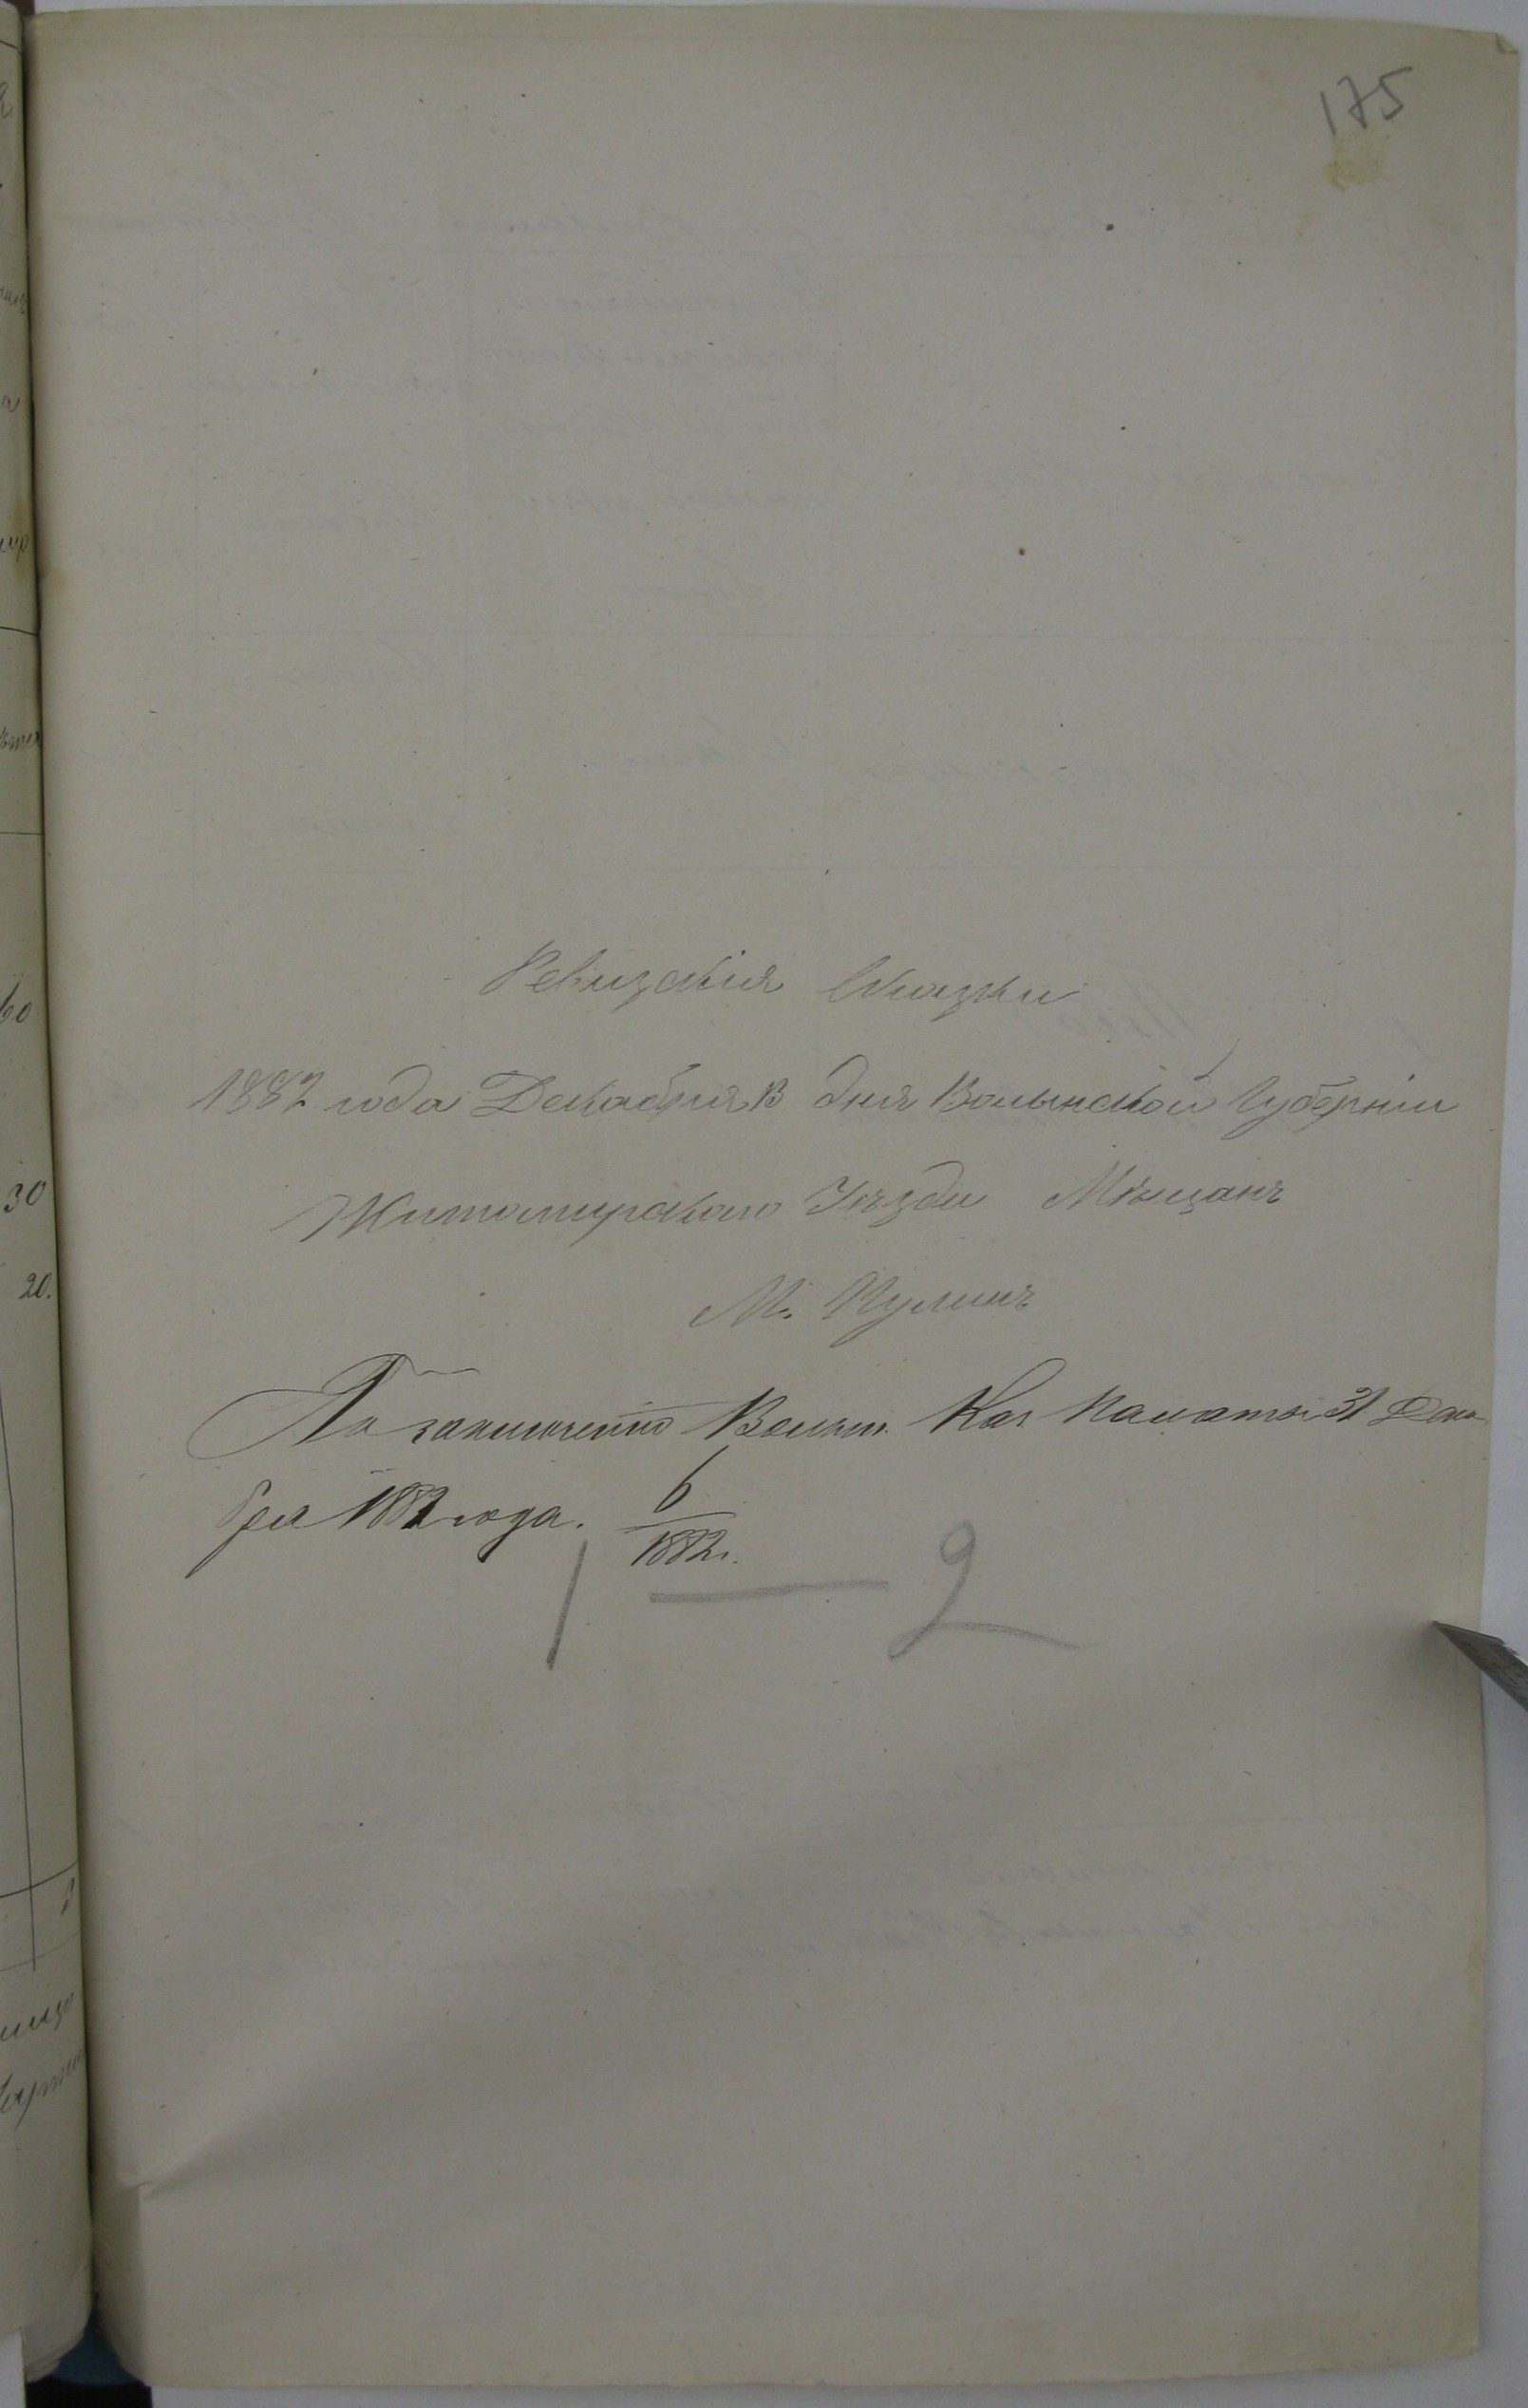 175
Ревизскія Сказки
1882 года Декабря 13 дня Волынской Губерніи
Житомирскаго Уѣзда Мѣщанъ
М. Кулинъ
По заключенію Волын. Каз. Палаты 31 Дека
бря 1882 года. 6/1882г.
1 — 2
60
30
20.